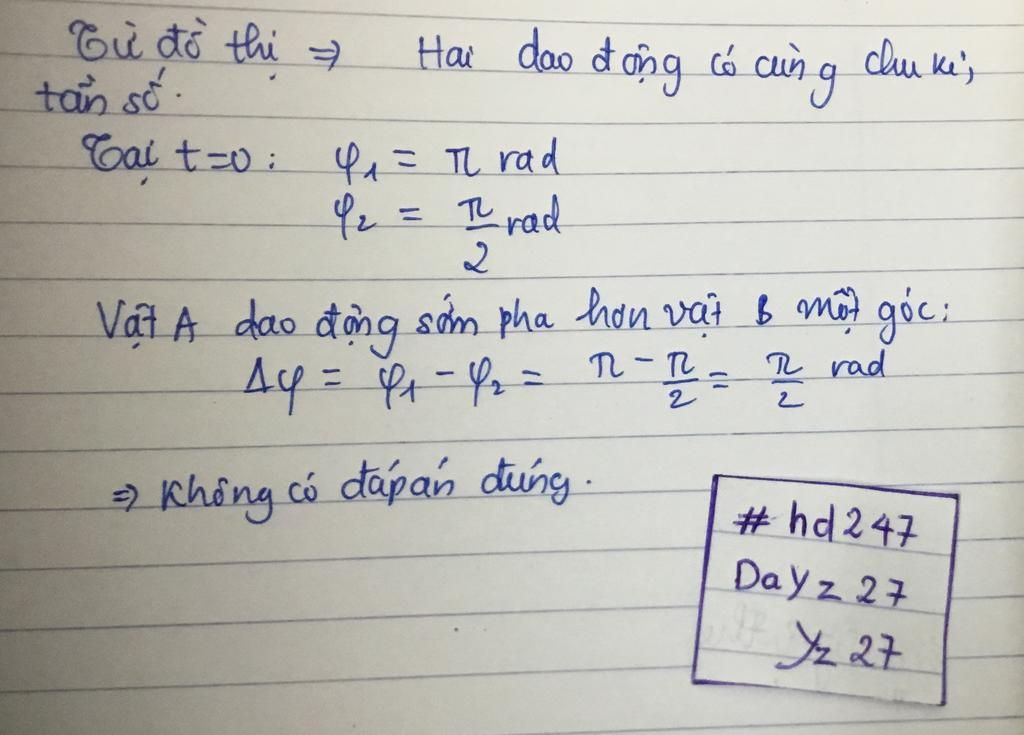 Từ đồ thị ⇒ Hai dao động có cùng chu kì,
tần số.
Tại t=0: φ₁ = π rad
φ₂ = π/2 rad
Vật A dao động sớm pha hơn vật B một góc:
Δφ = φ₁ - φ₂ = π - π/2 = π/2 rad
⇒ Không có đáp án đúng.
# hd247
Dayz 27
Yz 27